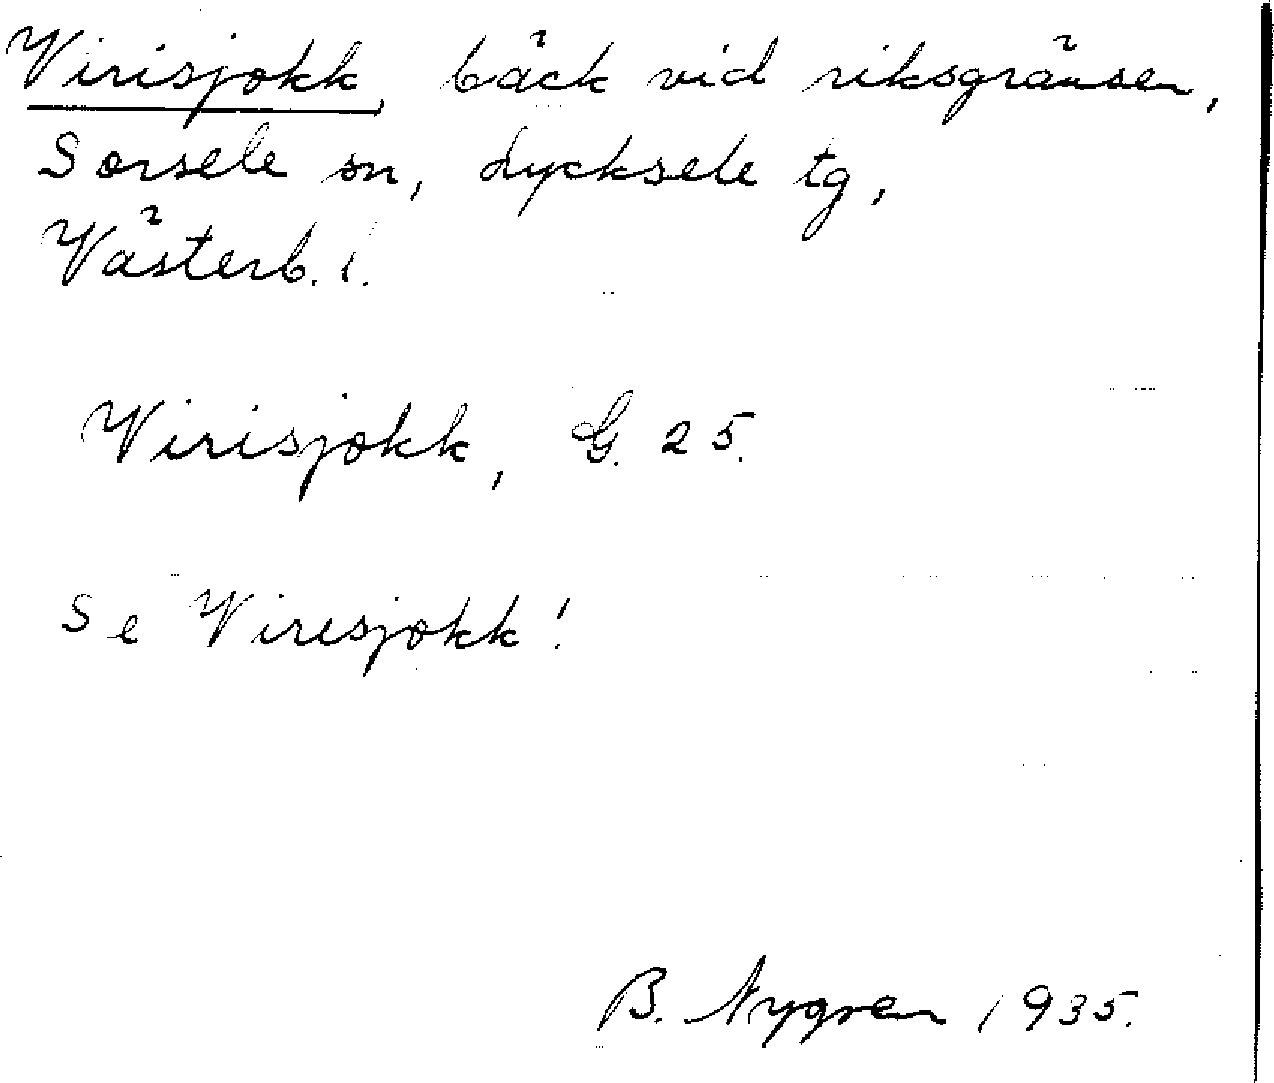 Virisjokk, bäck vid riksgränsen,
Sorsele sn, Lycksele tg,
Västerb. l.
Virisjokk, G. 25.
Se Viresjokk!
B. Nygren 1935.